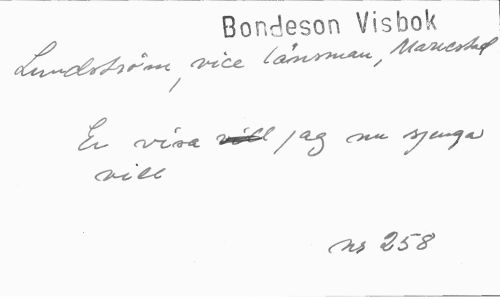 Bondeson Visbok
Lundström, vice länsman, Mariestad
En visa vill jag nu sjunga
vill
nr 258